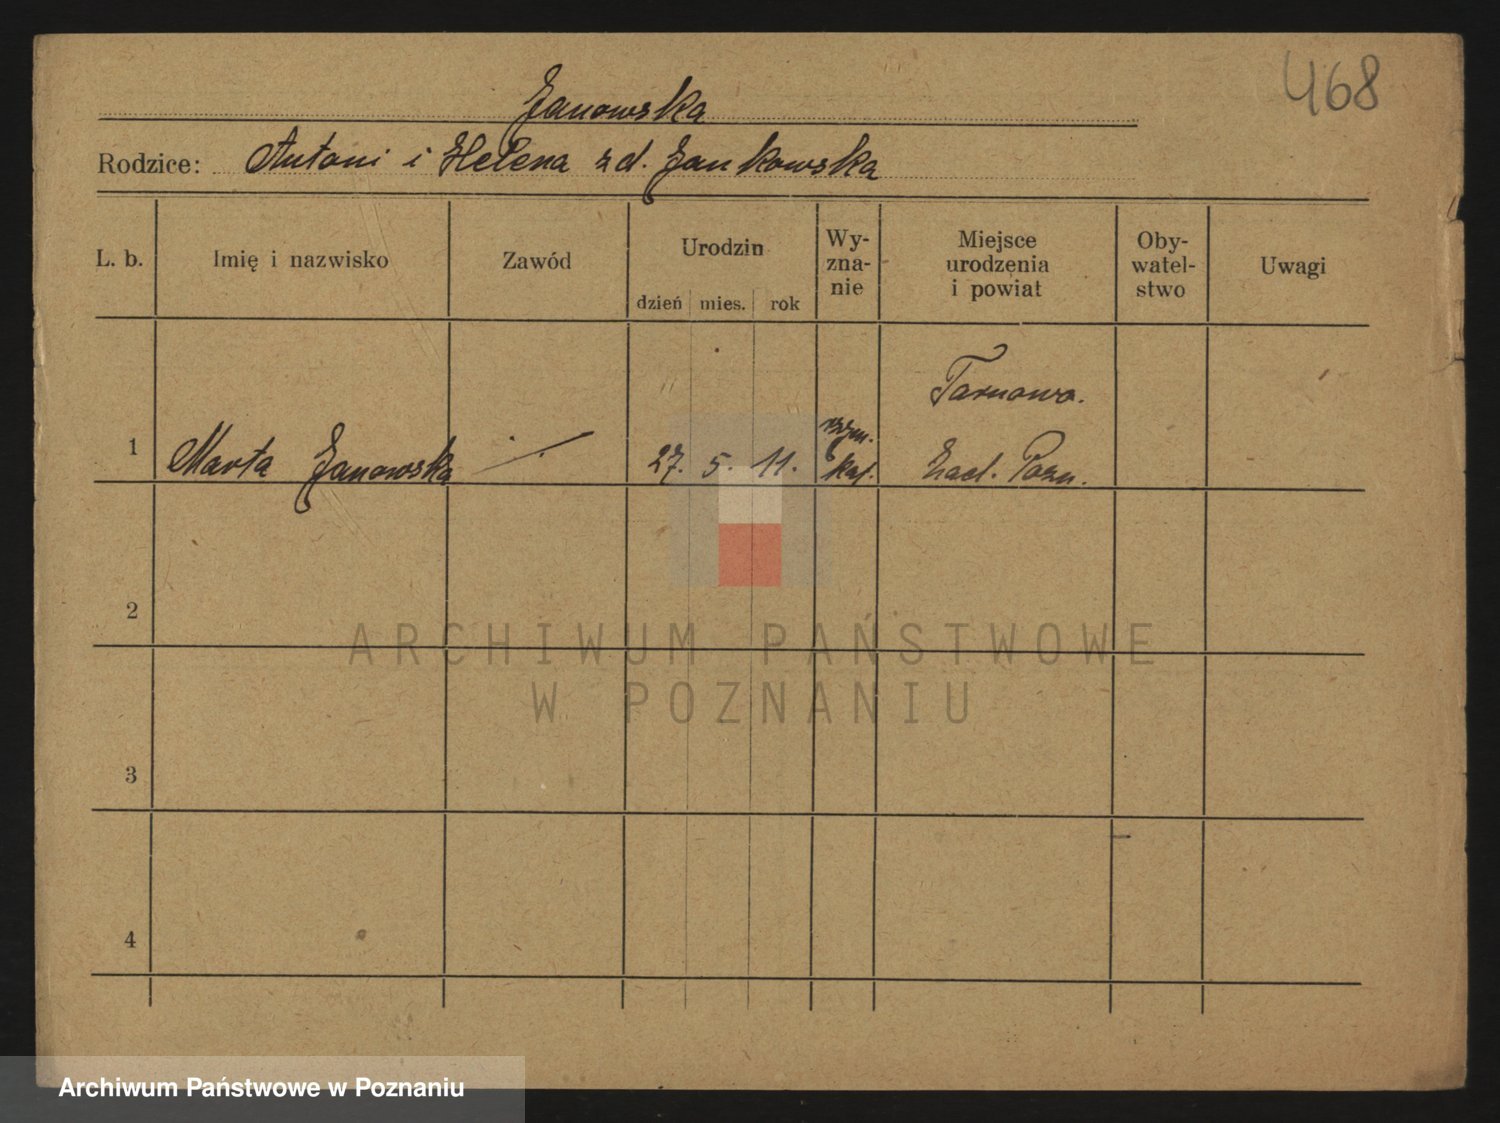 468
Janowska
Rodzice: Antoni i Helena zd. Jankowska
L. b.
Imię i nazwisko
Zawód
Urodzin
dzień mies. rok
Wy-
zna-
nie
Miejsce
urodzenia
i powiat
Oby-
watel-
stwo
Uwagi
Tarnowo.
1 Marta Janowska 27. 5. 11. rzym. kat. Pozn.
2
3
4
ARCHIWUM PAŃSTWOWE
W POZNANIU
Archiwum Państwowe w Poznaniu